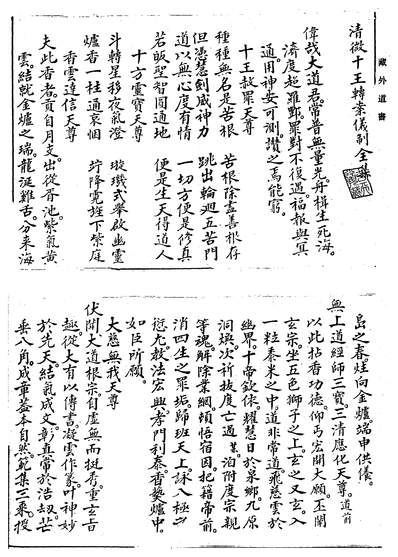 藏外道書
清微十王轉案儀制全集
偉哉大道君。常普無量光。舟楫生死海。
濟度超羅酆。罪對不復遇。福報與冥
通。用神安可測。讚之焉能窮。
十王赦罪天尊
種種無名是苦根　苦根除盡善根存
但憑慧劍威神力　跳出輪迴五苦門
道以無心度有情　一切方便是修真
若皈聖智圓通地　便是生天得道人
十方靈寶天尊
斗轉星移夜氣澄　璇璣式舉啟幽靈
爐香一炷通哀悃　竚降霓旌下紫庭
香雲達信天尊
夫此香者。貢自月支。出從骨池。紫氣黃
雲。結就金爐之瑞。龍涎雞舌。分來海
島之春。炷向金爐。端申供養。
無上道經師三寶三清應化天尊。道前
以此拈香功德。仰丐宏開大願。丕闡
玄宗。坐五色獅子之上。玄之又玄。入
一粒泰米之中。道非常道。飛慈雲於
幽界。十帝欽依。耀慧日於泉鄉。九原
洞煥。次祈拔度亡過某洎附度宗親
等魂。解除業網。頓悟宿因。把籍帝前。
消四生之罪垢。歸班天上。詠八極之
愆。允教法宏興。孝門利泰。香爇爐中。
如臣所願。
大慈無我天尊
伏聞大道根宗。自虛無而挺秀。重玄旨
趣。從大有以傳書。凝雲作篆。叶神妙
於先天。結氣成文。彰直常於浩劫。芒
垂八角。成章蓋本自然。範集三乘。授